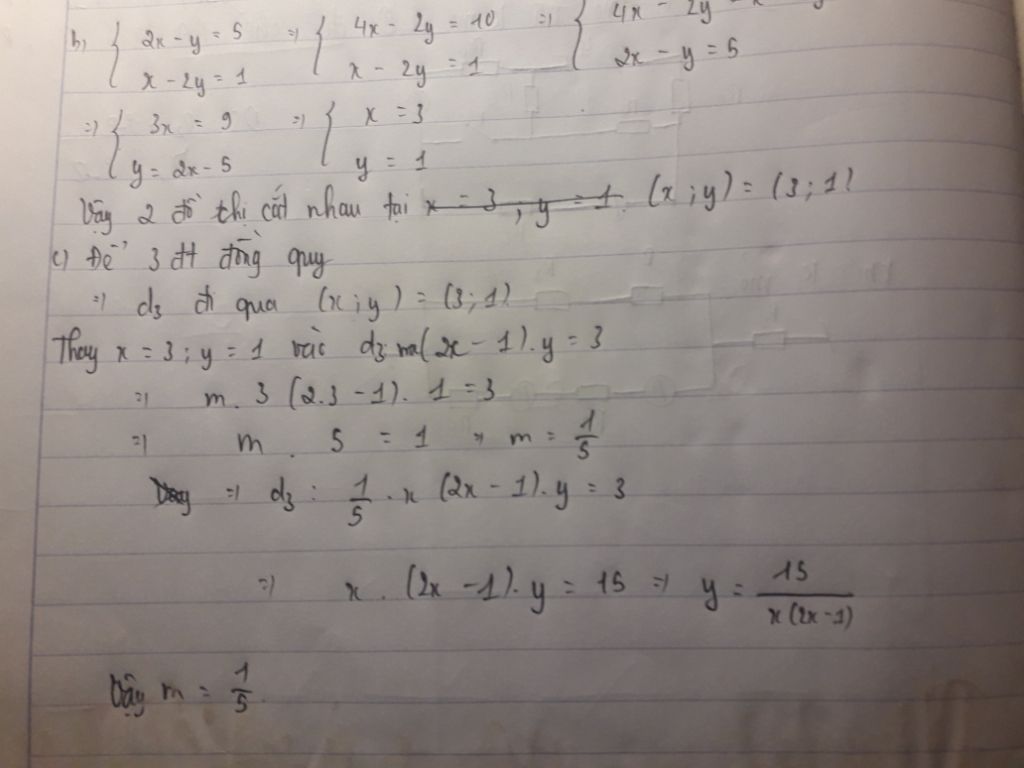 b, { 2x - y = 5 ⇒ { 4x - 2y = 10 ⇒ { 4x - 2y
x - 2y = 1 x - 2y = 1 2x - y = 5
⇒ { 3x = 9 ⇒ { x = 3
y = 2x - 5 y = 1
Vậy 2 đồ thị cắt nhau tại x = 3 ; y = 1. (x ; y) = (3 ; 1)
c) Để 3 đt đồng quy
⇒ d3 đi qua (x ; y) = (3 ; 1)
Thay x = 3 ; y = 1 vào d3: mx(2x - 1). y = 3
⇒ m. 3 (2.3 - 1). 1 = 3
⇒ m . 5 = 1 ⇒ m = 1/5
⇒ d3 : 1/5 . x (2x - 1). y = 3
⇒ x . (2x - 1). y = 15 ⇒ y = 15/x(2x-1)
Vậy m = 1/5.